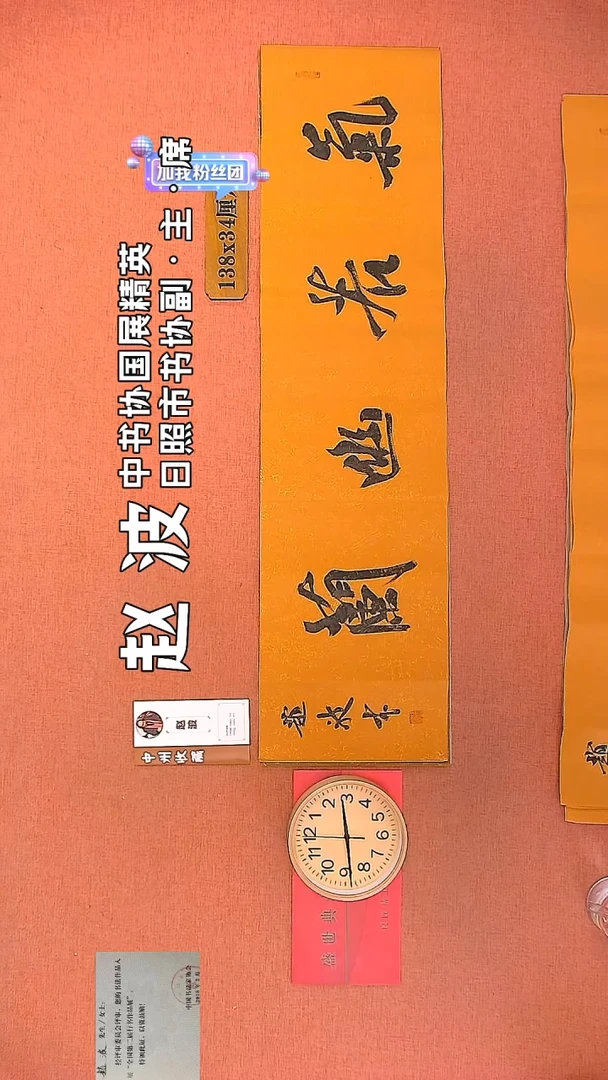 加我粉丝团
138x34厘
中书协国展精英
日照市书协副·主·席
赵波
氣若幽蘭
趙波书
赵波
中州收藏
12 1 2 3 4 5 6 7 8 9 10 11
盛世典
赵波 先生/女士:
经评审委员会评审，您的书法作品入
“全国第二届行书作品展”，
特颁此证，以资鼓励！
中国书法家协会